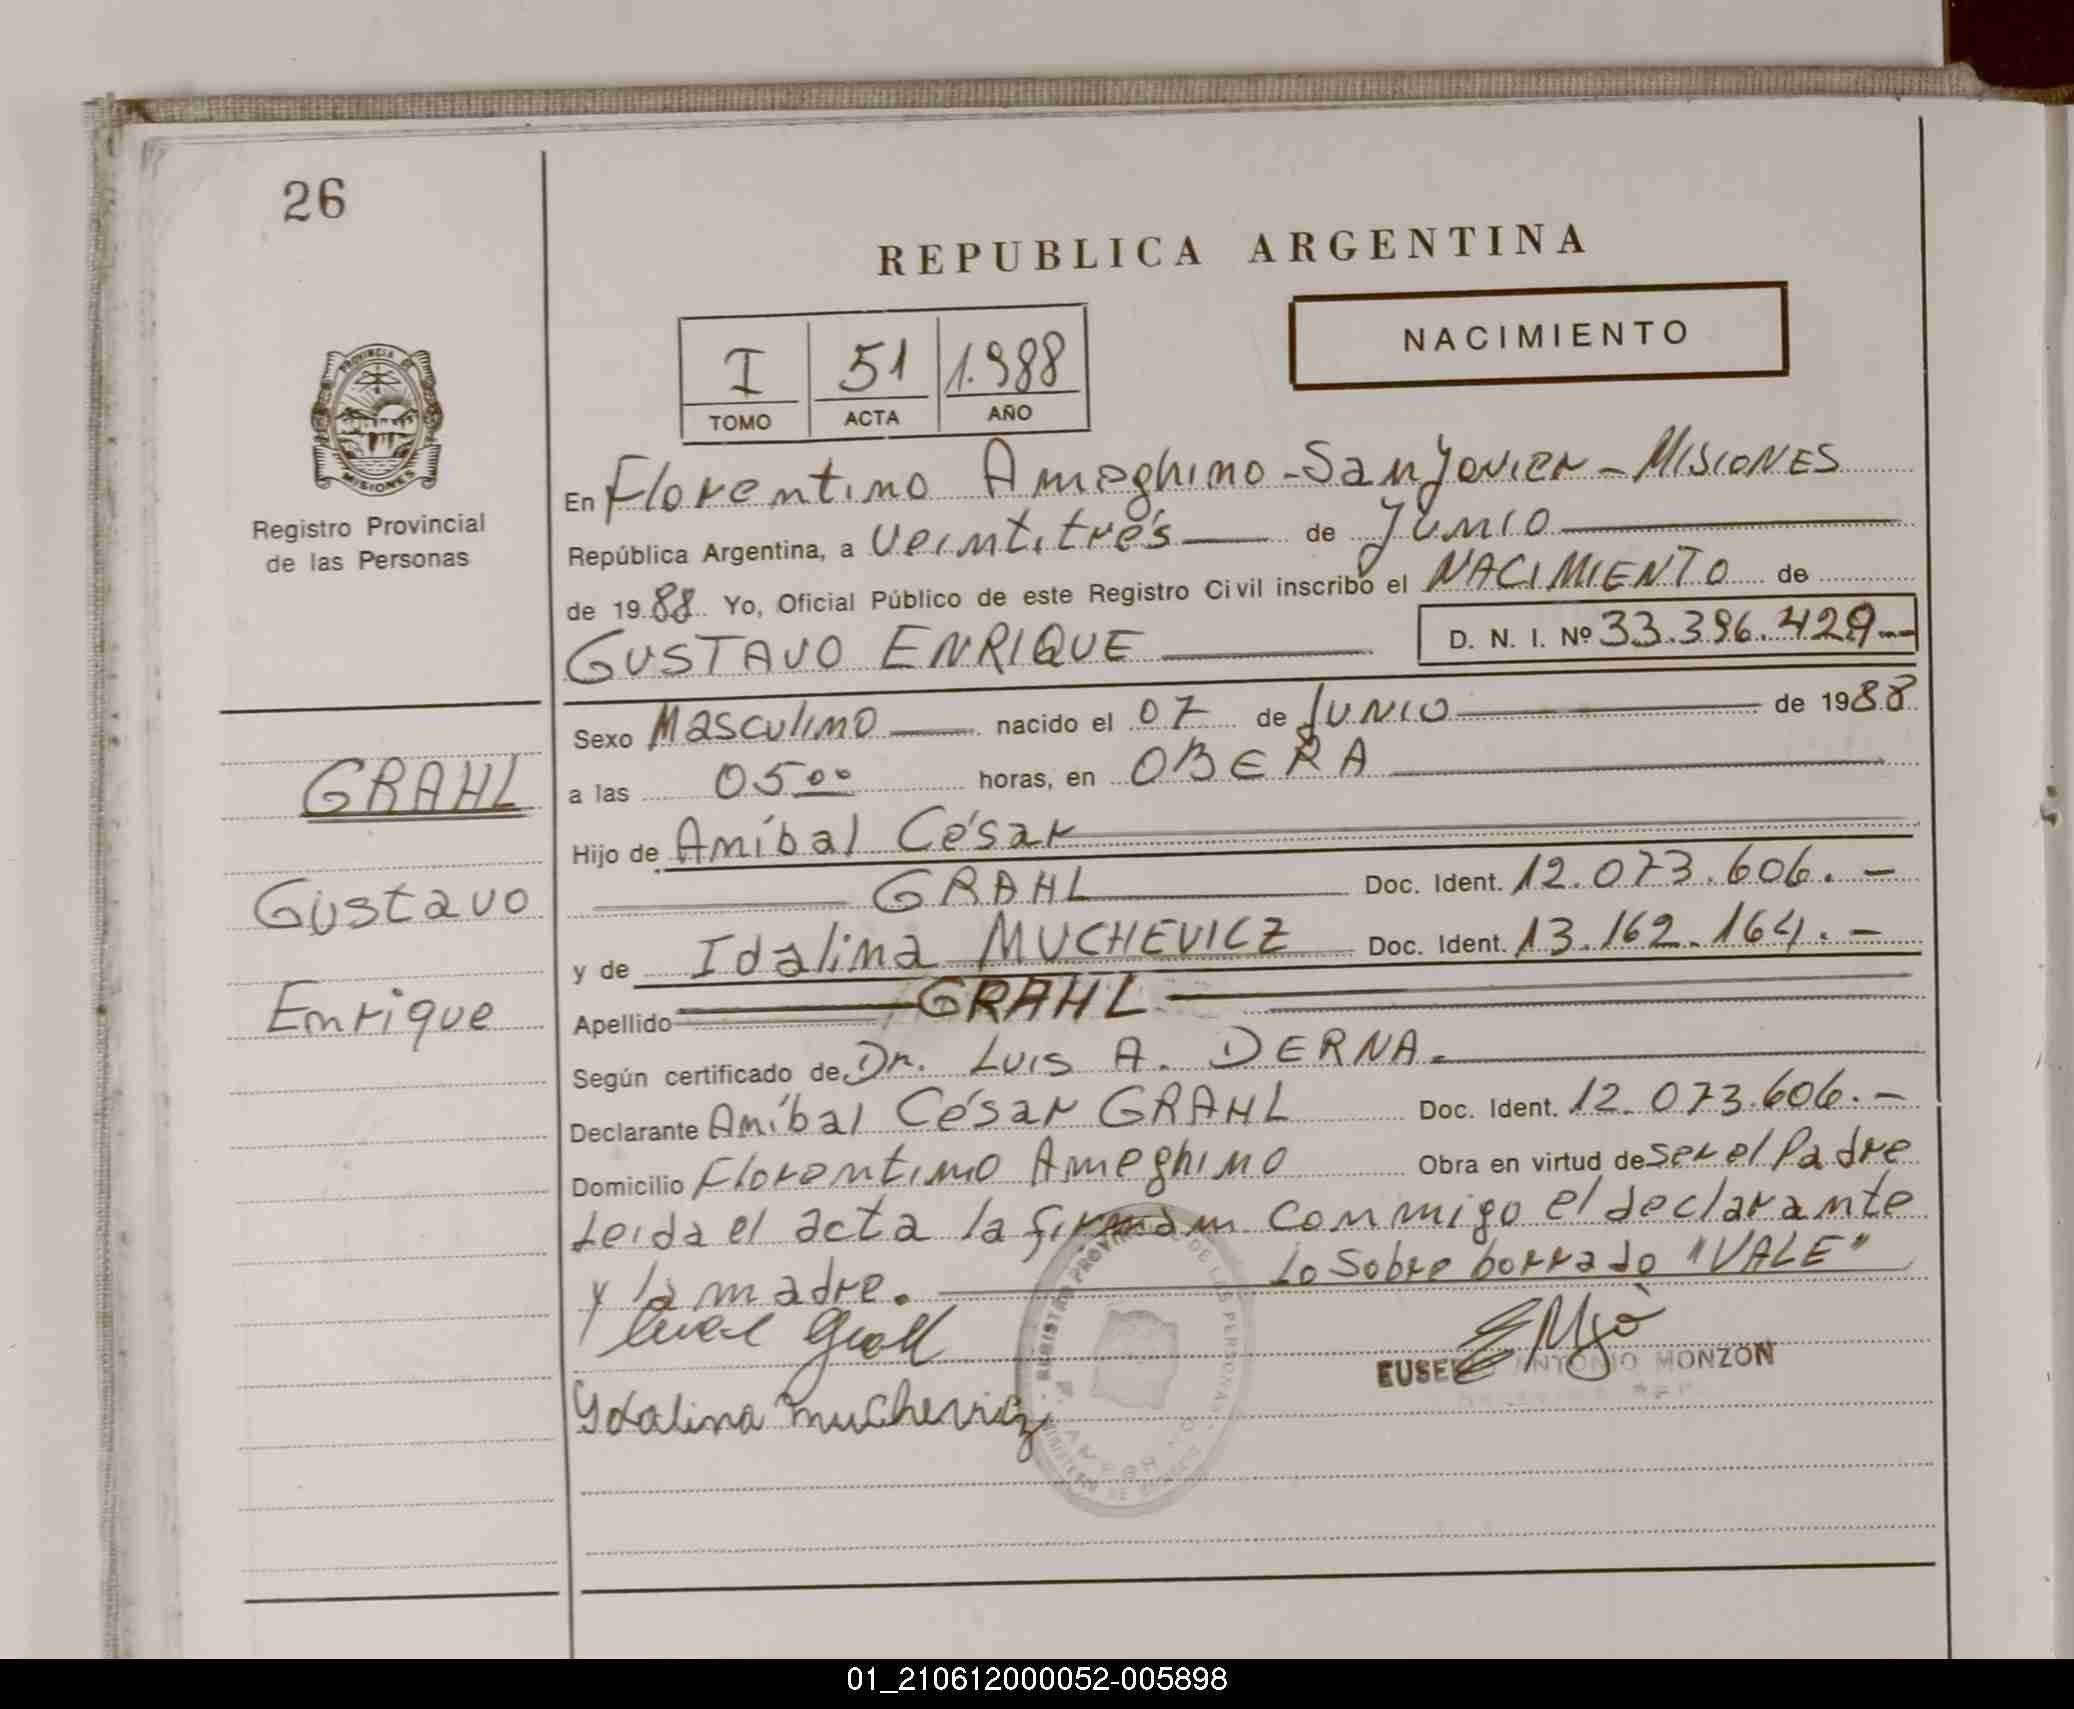 26
REPUBLICA ARGENTINA
NACIMIENTO
I 51 1.988
TOMO ACTA AÑO
PROVINCIA DE
MISIONES
Registro Provincial
de las Personas
En Florentino Ameghino - San Javier - MISIONES
República Argentina, a veintitrés de Junio
de 1988 Yo, Oficial Público de este Registro Civil inscribo el NACIMIENTO de
GUSTAVO ENRIQUE D. N. I. Nº 33.396.429
Sexo Masculino nacido el 07 de JUNIO de 1988
a las 05 00 horas, en OBERA
Hijo de Aníbal César
GRAHL Doc. Ident. 12.073.606.-
y de Idalina MUCHEVICZ Doc. Ident. 13.162.164.-
Apellido GRAHL
Según certificado de Dr. LUIS A. DERNA.
Declarante Aníbal César GRAHL Doc. Ident. 12.073.606.-
Domicilio Florentino Ameghino Obra en virtud de ser el Padre
Leida el acta la firman conmigo el declarante
y la madre. Lo sobre borrado "VALE"
GRAHL
Gustavo
Enrique
Ydalina Muchevicz
ANTONIO MONZON
01_210612000052-005898